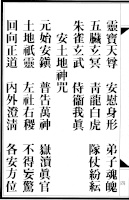 靈寶天尊　安慰身形　弟子魂魄
五臟玄冥　青龍白虎　隊仗紛紜
朱雀玄武　侍衞我眞
安土地神咒
元始安鎮　普告萬神　嶽瀆眞官
土地祇靈　左社右稷　不得妄驚
回向正道　內外澄淸　各安方位